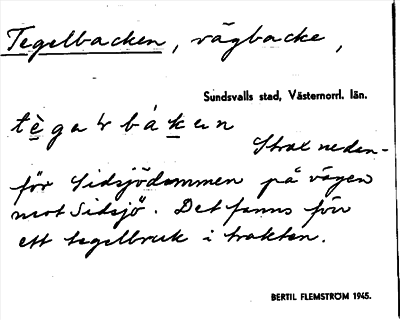 Tegelbacken, vägbacke,
Sundsvalls stad, Västernorrl. län.
tègalbákan
Strax nedan-
för Sidsjödammen på vägen
mot Sidsjö. Det fanns förr
ett tegelbruk i trakten.
BERTIL FLEMSTRÖM 1945.